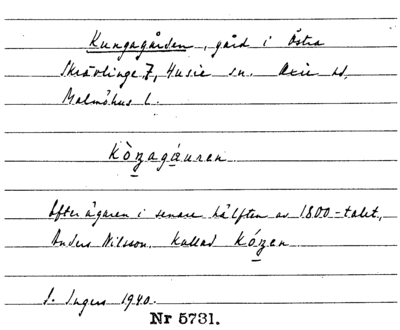 Kungagården, gård i Östra
Skrävlinge 7, Husie sn. Oxie hd,
Malmöhus l.
Kòngagáuren
Efter ägaren i senare hälften av 1800-talet,
Anders Nilsson, kallad Kóngen
S. Ingers 1940.
Nr 5731.